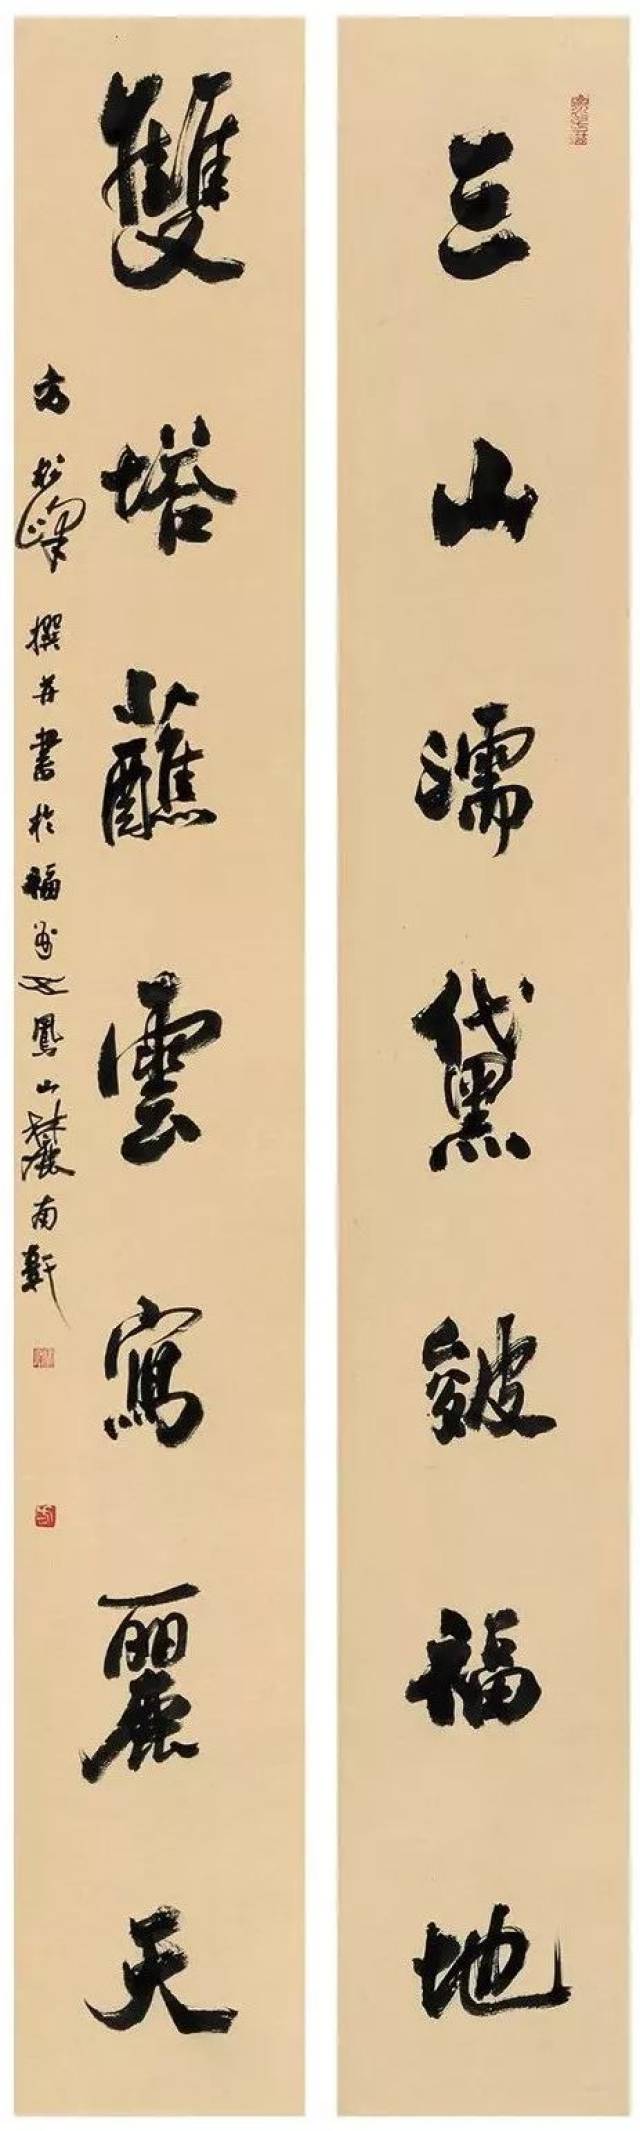 三山濡黛皴福地
雙塔蘸雲寫麗天
方松峰撰并書於福州五鳳山麓南軒